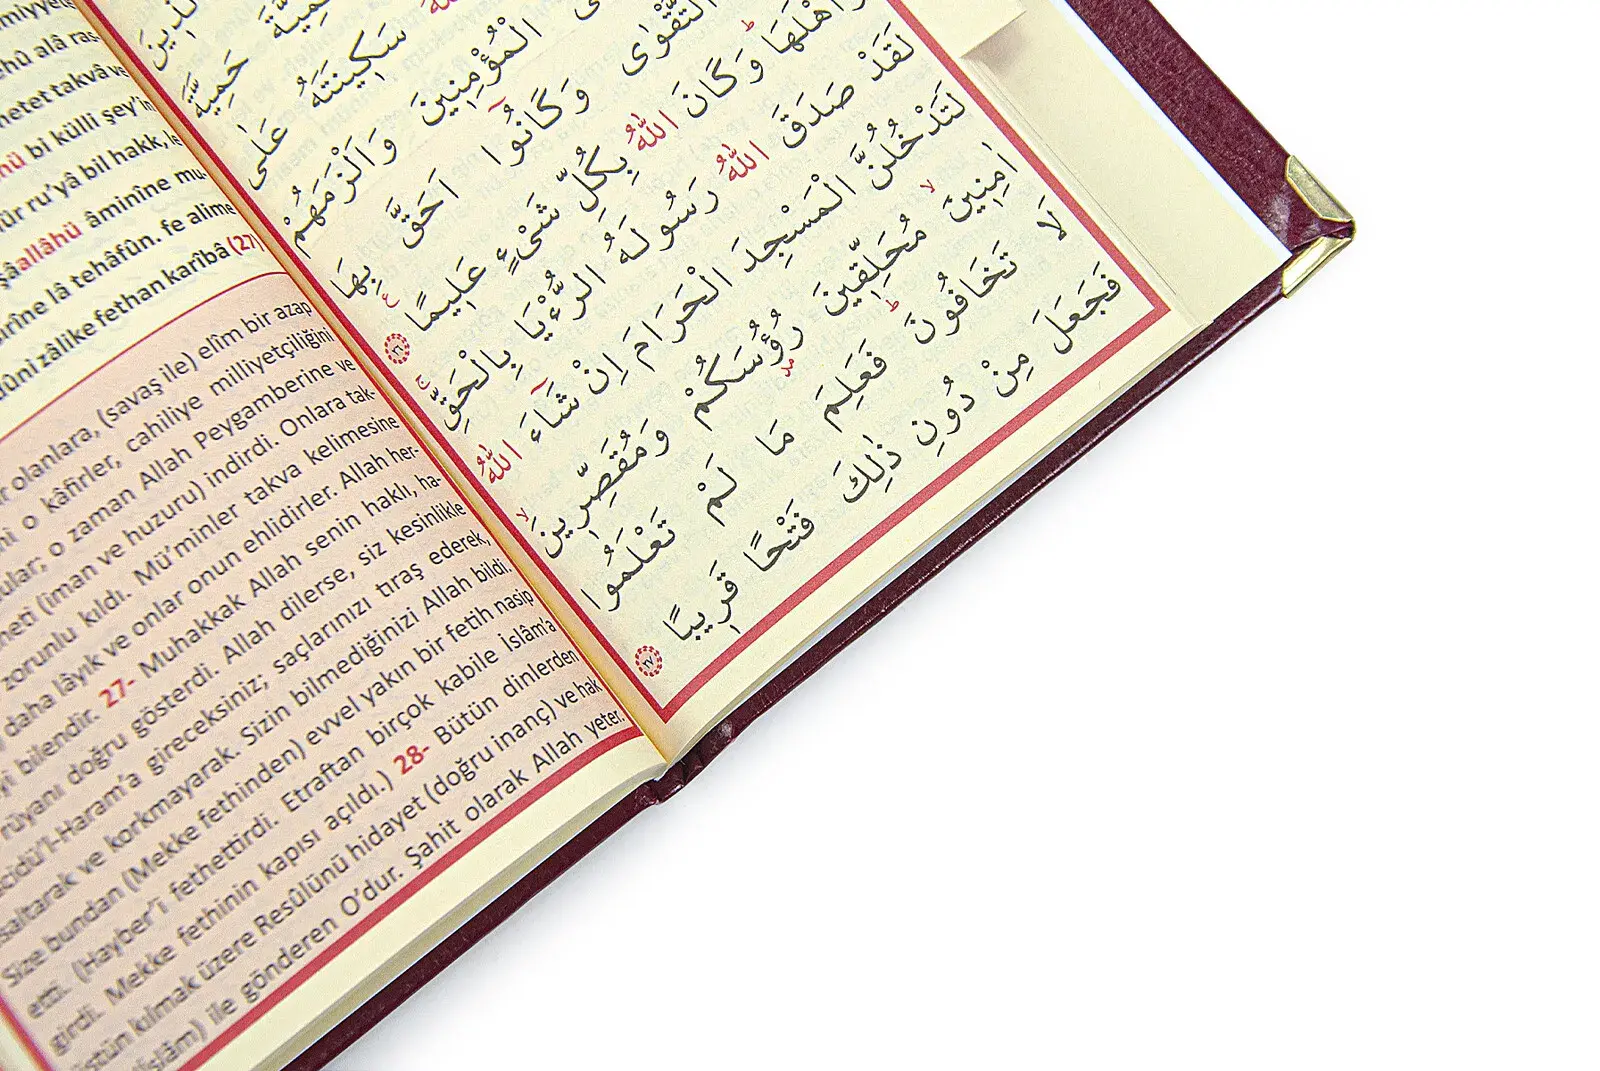 miyyete
ehû alâ ras
metet takvâ ve
hü bi külli şey'in
ür ru'yâ bil hakk, le
şâallâhü âminîne mu-
rîne lâ tehâfûn. fe alime
dûni zâlike fethan karîbâ (27)
olanlara, (savaş ile) elîm bir azap
o kâfirler, cahiliye milliyetçiliğini
o zaman Allah Peygamberine ve
(iman ve huzuru) indirdi. Onlara tak-
zorunlu kıldı. Mü'minler takva kelimesine
daha lâyık ve onlar onun ehlidirler. Allah her-
bilendir. 27- Muhakkak Allah senin haklı, ha-
rüyanı doğru gösterdi. Allah dilerse, siz kesinlikle
cidü'l-Haram'a gireceksiniz; saçlarınızı tıraş ederek,
saltarak ve korkmayarak. Sizin bilmediğinizi Allah bildi.
Size bundan (Mekke fethinden) evvel yakın bir fetih nasip
etti. (Hayber'i fethettirdi. Etraftan birçok kabile İslâm'a
girdi. Mekke fethinin kapısı açıldı.) 28- Bütün dinlerden
üstün kılmak üzere Resûlünü hidayet (doğru inanç) ve hak
(İslâm) ile gönderen O'dur. Şahit olarak Allah yeter.
الَّذِينَ
حَمِيَّةَ
سَكِينَتَهُ عَلٰى
الْمُؤْمِنِينَ وَاَلْزَمَهُمْ
التَّقْوٰى وَكَانُٓوا اَحَقَّ بِهَا
وَاَهْلَهَاۜ وَكَانَ اللّٰهُ بِكُلِّ شَىْءٍ عَلِيمًا ﴿٢٦﴾
لَقَدْ صَدَقَ اللّٰهُ رَسُولَهُ الرُّءْيَا بِالْحَقِّ
لَتَدْخُلُنَّ الْمَسْجِدَ الْحَرَامَ اِنْ شَٓاءَ اللّٰهُ
اٰمِنِينَ مُحَلِّقِينَ رُؤُسَكُمْ وَمُقَصِّرِينَ
لَا تَخَافُونَ فَعَلِمَ مَا لَمْ تَعْلَمُوا
فَجَعَلَ مِنْ دُونِ ذٰلِكَ فَتْحًا قَرِيبًا ﴿٢٧﴾